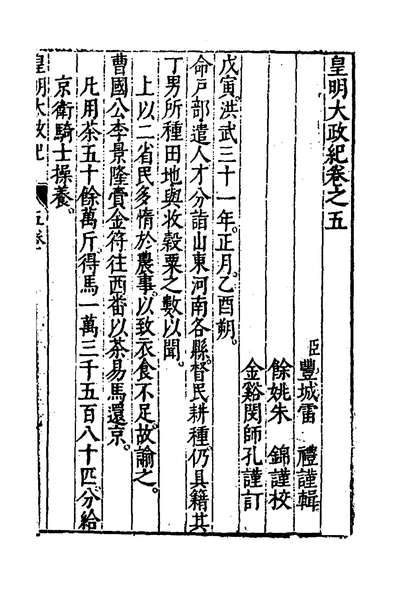 皇明大政紀卷之五
臣豐城雷　禮謹輯
餘姚朱　錦謹校
金谿閔師孔謹訂
戊寅。洪武三十一年。正月。乙酉朔。
命戶部遣人才分詣山東河南各縣。督民耕種。仍具籍其
丁男所種田地與收穀粟之數以聞。
上以二省民多惰於農事。以致衣食不足。故諭之。
曹國公李景隆賫金符往西番以茶易馬還京。
凡用茶五十餘萬斤。得馬一萬三千五百八十匹。分給
京衛騎士操養。
皇明大政紀
五卷